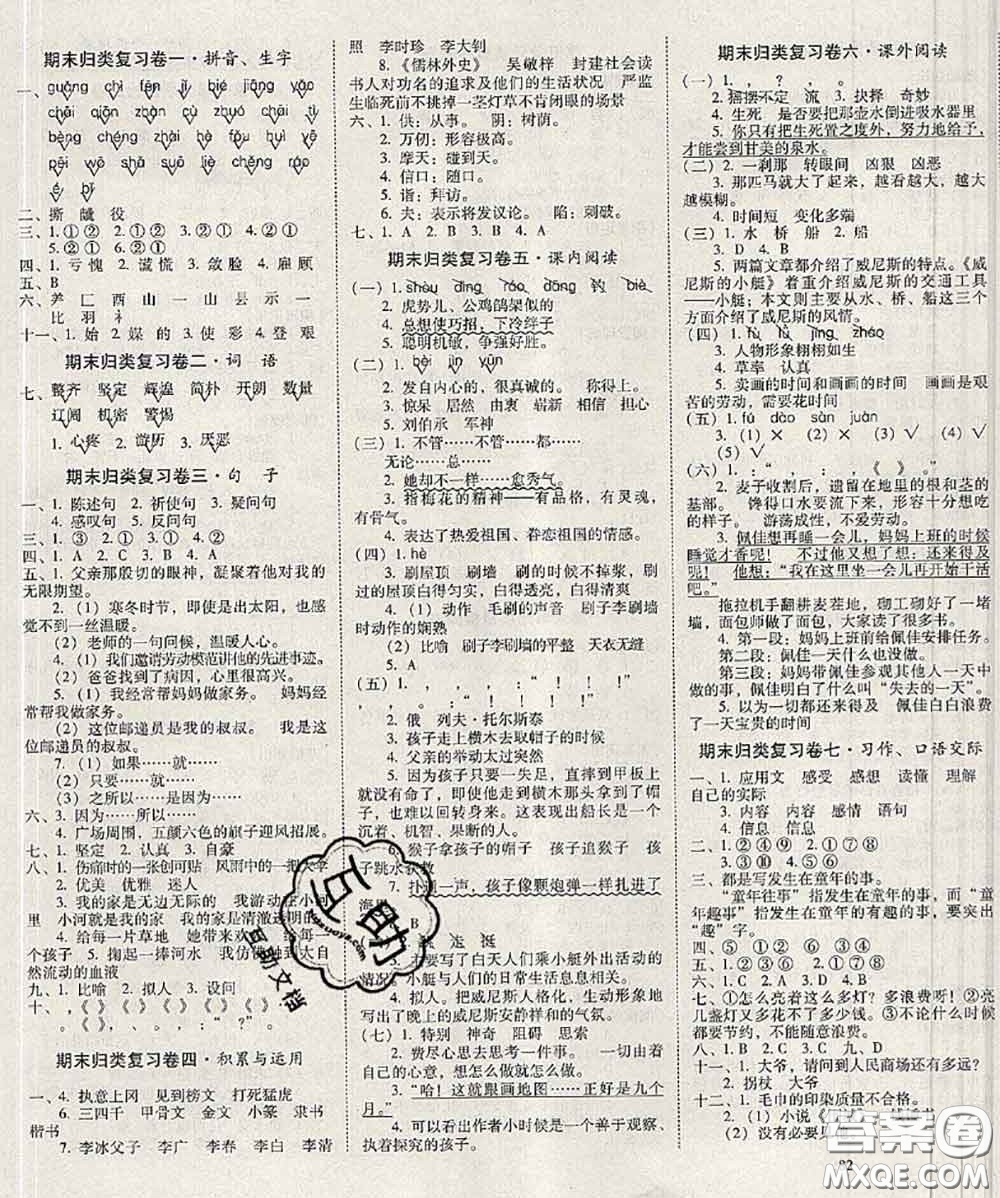 期末归类复习卷一·拼音、生字
一、guǎng chì fēn jī biē jiǎng yì
qiǎn zhān zàn cù zhǔ jì tì
bēng chéng zhài hà fǒu bǐ yǔ
pēi wō shā suǒ jiè chēng ráo
é bǐ
二、撕 龇 役
三、1.①② 2.②① 3.②① 4.②①
5.②① 6.①②
四、1.亏愧 2.谎慌 3.敛脸 4.雇顾
五、B
六、⺶ 匚 西 山 一 山 县 示 一
比 羽 礻
十一、1.始 2.媒 的 3.使 彩 4.登 艰
期末归类复习卷二·词 语
七、整齐 坚定 辉煌 简朴 开朗 数量
辽阔 机密 警惕
1.心疼 2.游历 3.厌恶
期末归类复习卷三·句 子
一、1.陈述句 2.祈使句 3.疑问句
4.感叹句 5.反问句
三、1.③ 2.① 3.① 4.②
四、1.A 2.C 3.C 4.A
五、1.父亲那殷切的眼神，凝聚着他对我的
无限期望。
2.(1)寒冬时节，即使是出太阳，也感
觉不到一丝温暖。
(2)老师的一句问候，温暖人心。
4.(1)我们邀请劳动模范讲他的先进事迹。
(2)爸爸找到了病因，心里很高兴。
5.(1)我经常帮妈妈做家务。 妈妈经
常帮我做家务。
(2)这位邮递员是我的叔叔。 我是这
位邮递员的叔叔。
7.(1)如果……就……
(2)只要……就……
(3)之所以……是因为……
六、3.因为……所以……
4.广场周围，五颜六色的旗子迎风招展。
七、1.坚定 2.认真 3.自豪
八、1.伤痛时的一张创可贴 风雨中的一把大伞
2.优美 优雅 迷人
3.我的家是无边无际的 我畅游在小河
里 小河就是我的家 我的家是清澈透明的
4.给每一片草地 她速来欢
个孩子 5.掬起一捧河水 我仿佛
然流动的血液
九、1.比喻 2.拟人 3.设问
十、，《 》《 》《 》《 》
。《 》。 ：“ ？”。
期末归类复习卷四·积累与运用
一、4.执意上冈 见到榜文 打死猛虎
6.三四千 甲骨文 金文 小篆 隶书
楷书
7.李冰父子 李广 李春 李白 李清
照 李时珍 李大钊
8.《儒林外史》 吴敬梓 封建社会读
书人对功名的追求及他们的生活状况 严监
生临死前不挑掉一茎灯草不肯闭眼的场景
六、1.供：从事。 阴：树荫。
2.万仞：形容极高。
3.摩天：碰到天。
4.信口：随口。
5.诣：拜访。
6.夫：表示将发议论。 陷：刺破。
七、1.A 2.B 3.B 4.A
期末归类复习卷五·课内阅读
(一)1.shòu dīng ráo dāng 钓 biè
2.虎势儿、公鸡鸽架似的
4.总想使巧招，下冷绊子
5.聪明机敏，争强好胜。
(二)1.bèi jīn yūn
2.发自内心的，很真诚的。 称得上。
3.惊呆 居然 由衷 崭新 相信 担心
5.刘伯承 军神
(三)1.不管……不管……都……
无论……总……
2.她却不一样……愈秀气。
3.指梅花的精神——有品格，有灵魂，
有骨气。
4.表达了热爱祖国、眷恋祖国的情感。
(四)1.hè
3.刷屋顶 刷墙 刷的时候不掉浆，刷
过的屋顶白得透明 白得透亮，白得清爽
4.(1)动作 毛刷的声音 刷子李刷墙
时动作的娴熟
(2)比喻 刷子李刷墙的平整 天衣无缝
5.A
(五)1.，，，：“ ！ ！ ！”
2.俄 列夫·托尔斯泰
3.孩子走上横木去取帽子的时候
4.父亲的举动太过突然
5.因为孩子只要一失足，直摔到甲板上
就没命了，即使他走到横木那头拿到了帽子，
也难以回转身来。这表现出船长是一个
沉着、机智、果断的人。
6.猴子拿孩子的帽子 孩子追猴子 孩
子跳水获救
7.扑通一声，孩子像颗炮弹一样扎进了
海
B
造 挺
2.主要写了白天人们乘小艇外出活动的
情况。 小艇与人们的日常生活息息相关。
4.拟人。把威尼斯人格化，生动形象地写
出了晚上的威尼斯安静祥和的气氛。
(七)1.特别 神奇 阻碍 思索
2.费尽心思去思考一件事。 一切由着
自己的心意，想怎么做就怎么做。
3.“哈！这就跟画地图……正好是九个
月。”
4.可以看出作者小时候是一个善于观察、
执着探究的孩子。
期末归类复习卷六·课外阅读
(一)1.， ？ 。
2.摇摆不定 流 3.抉择 奇妙
4.生死 是否要把那壶水倒进吸水器里
5.你只有把生死置之度外，努力地给予，
才能尝到甘美的泉水。
(二)2.一刹那 转眼间 凶狠 凶恶
3.那匹马就大了起来，越看越大，越大
越模糊。
4.时间短 变化多端
(三)1.水 桥 船 2.船
3.D 4.A
5.两篇文章都介绍了威尼斯的特点。《威
尼斯的小艇》着重介绍威尼斯的交通工具
——小艇；本文则主要从水、桥、船这三个
方面介绍了威尼斯的风情。
(四)1.fú lǜ jīng zháo
3.人物形象栩栩如生
4.草率 认真
5.卖画的时间和画画的时间 画画是艰
苦的劳动，需要花时间
(五)1.fú dào sàn juàn
3.(1)✓ (2)× (3)× (4)✓
(5)✓
(六)1.：“ ，， 《 》。”
2.麦子收割后，遗留在地里的根和茎的
基部。 馋得口水要流下来，形容十分想吃
的样子。 游荡成性，不爱劳动。
3.佩佳想再睡一会儿，妈妈上班的时候
睡觉才香呢！ 不过他又想了想：还来得及
呢！ 他想：“我在这里坐一会儿再开始干活
吧。”
拖拉机手翻耕麦茬地，砌工砌好了一堵
墙，面包师做了面包，大家读了很多书。
4.第一段：妈妈上班前给佩佳安排任务。
第二段：佩佳一天什么也没做。
第三段：妈妈带佩佳查看其他人一天中
做的事，佩佳明白了什么叫“失去的一天”。
5.以为一切都还来得及 佩佳白白浪费
了一天宝贵的时间
期末归类复习卷七·习作、口语交际
一、1.应用文 感受 感想 读懂 理解
自己的实际
3.内容 内容 感情 语句
4.信息 信息
二、1.②④⑨ 2.①③⑦⑧
3.⑤⑥
三、都是写发生在童年的事。
“童年往事”指发生在童年的事，而“童
年趣事”指发生在童年的有趣的事，要突出
“趣”字。
四、⑤⑥③①④②
五、1.② 2.① 3.⑦⑧
六、1.C 2.A
七、①怎么亮着这么多灯？多浪费呀！②亮
几盏灯又多花不了多少钱。③不论什么时候
都要节约，不能随意浪费。
八、1.B 2.C 3.C 九、D
十一、1.大爷，请问到人民商场还有多远？
2.拐杖 大爷
十二、1.毛巾的印染质量不合格。
2.(1)小说《
(2)没有必要见
92
互助
互助文档
答案圈
MXQE.COM